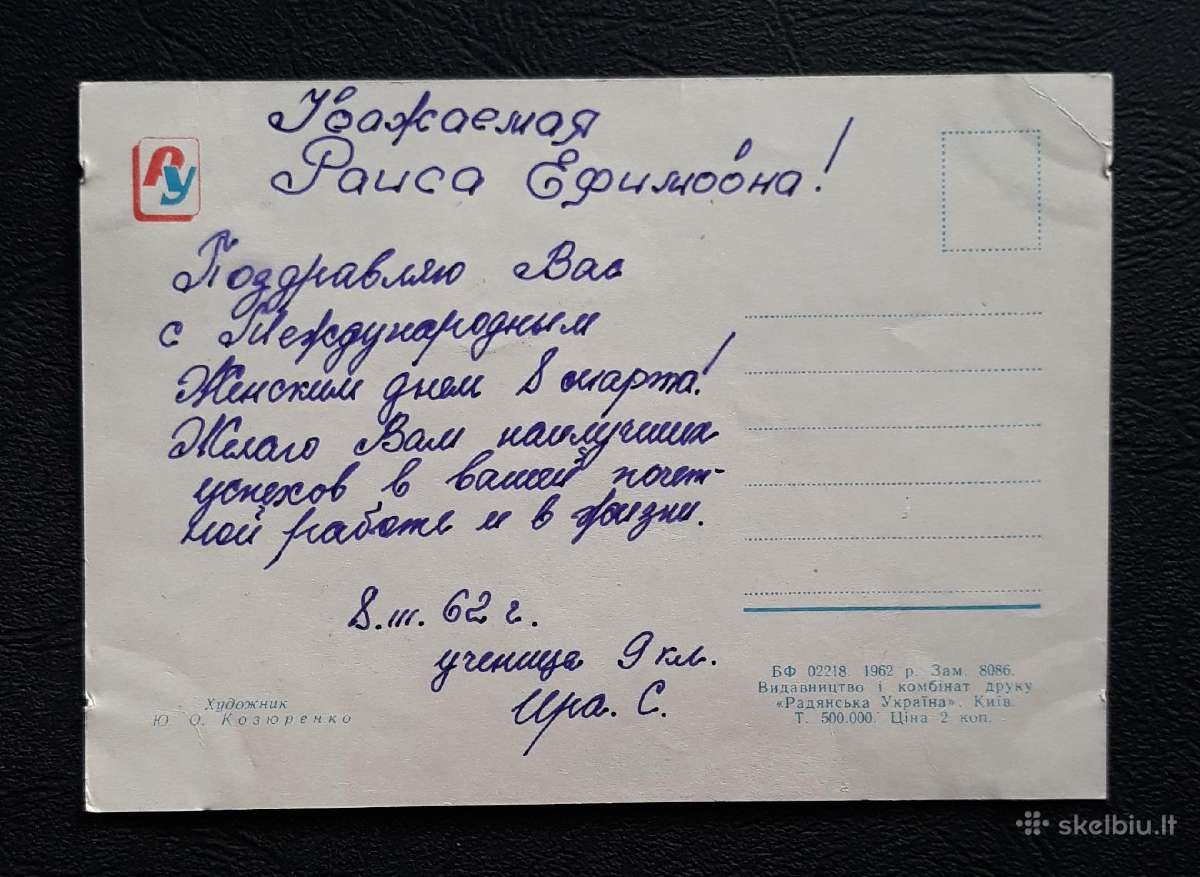 Уважаемая
Раиса Ефимовна!
РУ
Поздравляю Вас
с Международным
Женским днем 8 марта!
Желаю Вам наилучших
успехов в вашей почет-
ной работе и в жизни.
8.III.62 г.
ученица 9 кл.
Ира. С.
Художник
Ю. О. Козюренко
БФ 02218. 1962 р. Зам. 8086.
Видавництво і комбінат друку
«Радянська Україна». Київ.
Т. 500.000. Ціна 2 коп.
skelbiu.lt